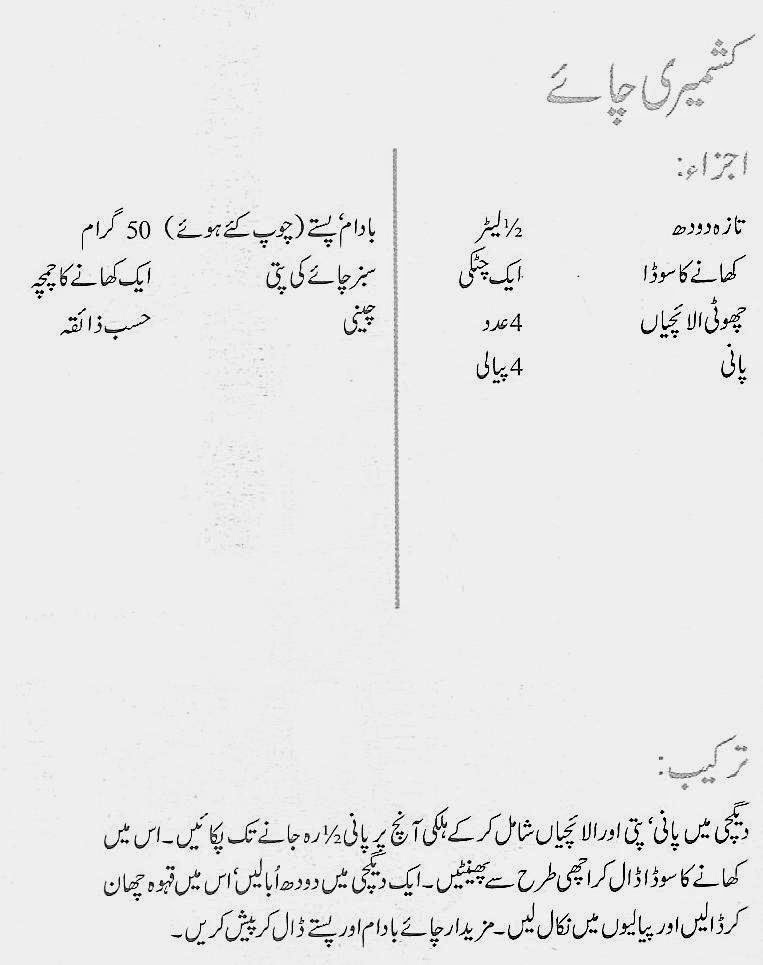 کشمیری چائے
اجزاء:
تازہ دودھ ½ لیٹر
کھانے کا سوڈا ایک چٹکی
چھوٹی الائچیاں 4 عدد
پانی 4 پیالی
بادام، پستے (چوپ کئے ہوئے) 50 گرام
سبز چائے کی پتی ایک کھانے کا چمچہ
چینی حسب ذائقہ
ترکیب:
دیگچی میں پانی، پتی اور الائچیاں شامل کر کے ہلکی آنچ پر پانی ½ رہ جانے تک پکائیں۔ اس میں
کھانے کا سوڈا ڈال کر اچھی طرح سے پھینٹیں۔ ایک دیگچی میں دودھ اُبالیں، اس میں قہوہ چھان
کر ڈالیں اور پیالیوں میں نکال لیں۔ مزیدار چائے بادام اور پستے ڈال کر پیش کریں۔